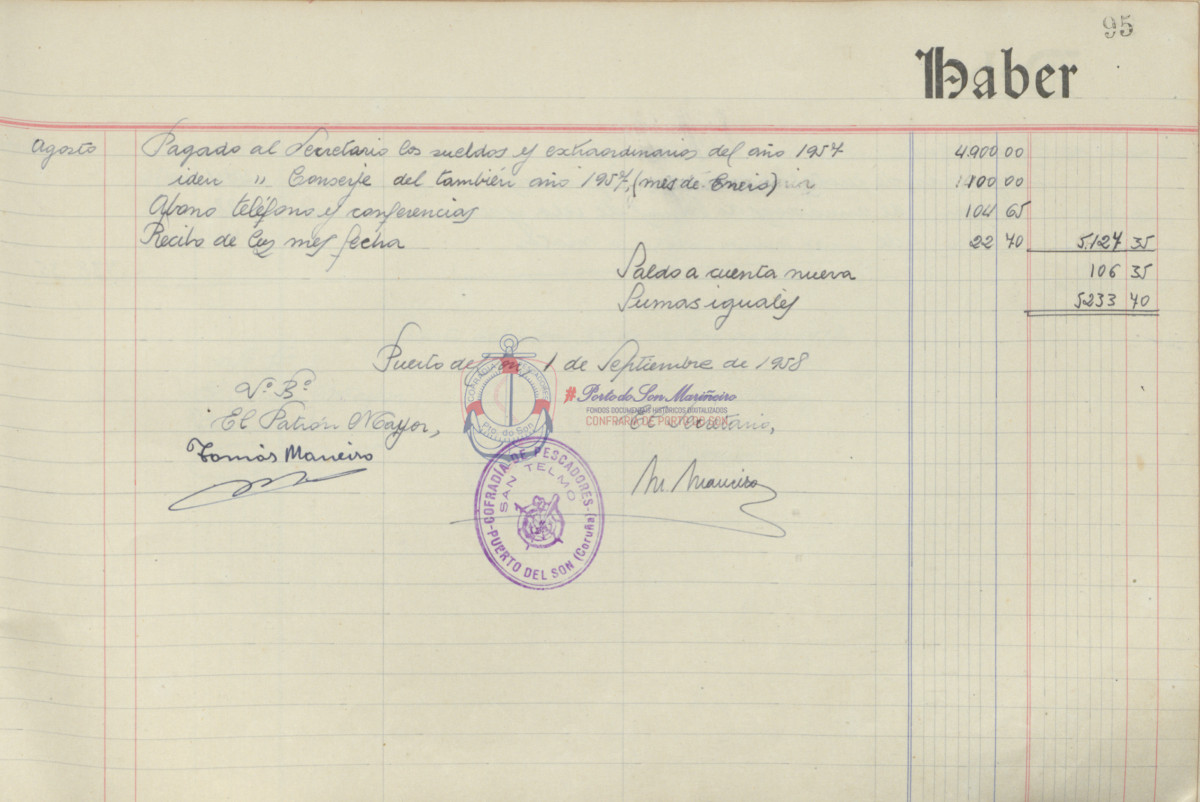 95
Haber
Agosto Pagado al Secretario los sueldos y extraordinarios del año 1957 4.900 00
iden " Conserje del también año 1957, (mes de Enero) 100 00
Abono teléfono y conferencias 104 65
Recibo de luz mes fecha 22 70 5.127 35
Saldo a cuenta nueva 106 35
Sumas iguales 5233 40
Puerto del Son, 1 de Septiembre de 1958
Vº Bº
El Patrón Mayor, El Secretario,
Tomás Maneiro
M. Maneiro
COFRADÍA DE PESCADORES
Pto. do Son
# Porto do Son Mariñeiro
FONDOS DOCUMENTAIS HISTÓRICOS DIXITALIZADOS
CONFRARÍA DE PORTO DO SON
COFRADÍA DE PESCADORES
SAN TELMO
PUERTO DEL SON (Coruña)